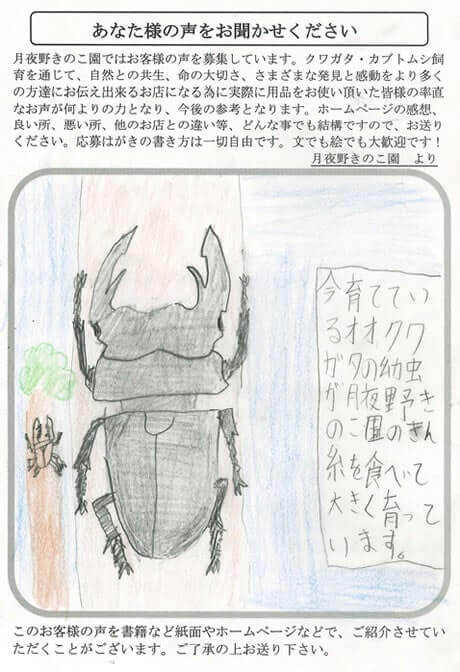 あなた様の声をお聞かせください
月夜野きのこ園ではお客様の声を募集しています。クワガタ・カブトムシ飼
育を通じて、自然との共生、命の大切さ、さまざまな発見と感動をより多く
の方達にお伝え出来るお店になる為に実際に用品をお使い頂いた皆様の率直
なお声が何よりの力となり、今後の参考となります。ホームページの感想、
良い所、悪い所、他のお店との違い等、どんな事でも結構ですので、お送り
ください。応募はがきの書き方は一切自由です。文でも絵でも大歓迎です！
月夜野きのこ園　より
今育ててい
るオオクワ
ガタの幼虫
が月夜野き
のこ園のきん
糸を食べて
大きく育って
います。
このお客様の声を書籍など紙面やホームページなどで、ご紹介させてい
ただくことがございます。ご了承の上お送り下さい。